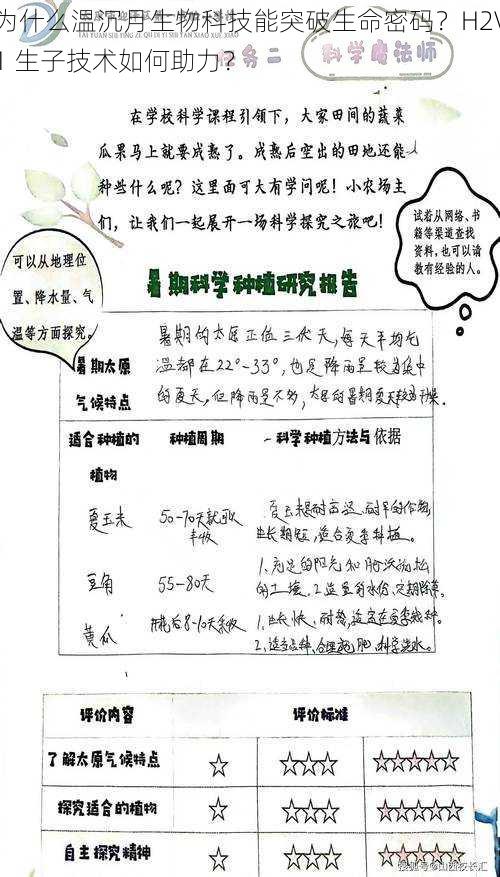 为什么温沉月生物科技能突破生命密码？H2V
1 生子技术如何助力？
务二
科学魔法师
在学校科学课程引领下，大家田间的蔬菜
瓜果马上就要成熟了。成熟后空出的田地还能
种些什么呢？这里面可大有学问呢！小农场主
们，让我们一起展开一场科学探究之旅吧！
试着从网络、书
籍等渠道查找
资料，也可以请
教有经验的人。
可以从地理位
置、降水量、气
温等方面探究。
暑期科学种植研究报告
暑期太原
气候特点
暑期的太原正值三伏天，每天平均气
温都在22°-33°，也是降雨量较为集中
的夏天，但降雨量不多，太原的暑期夏天较为干燥。
适合种植的
植物
种植周期
科学种植方法与依据
夏玉米
50-70天就可以
丰收
生长期短，适合夏季种植。
豆角
55-80天
1、充足的阳光和肥沃疏松
的土壤，2、适量的水份，定期除草。
黄瓜
开花后8-10天采收
1、生长快、耐热，适宜在夏季栽种。
2、适当品种，合理施肥，科学浇水。
评价内容
评价标准
了解太原气候特点
☆
☆☆☆
☆☆☆☆☆
探究适合的植物
☆
☆☆☆
☆☆☆☆☆
自主探究精神
☆
☆☆☆
☆☆☆☆☆
搜狐号@山西校长汇